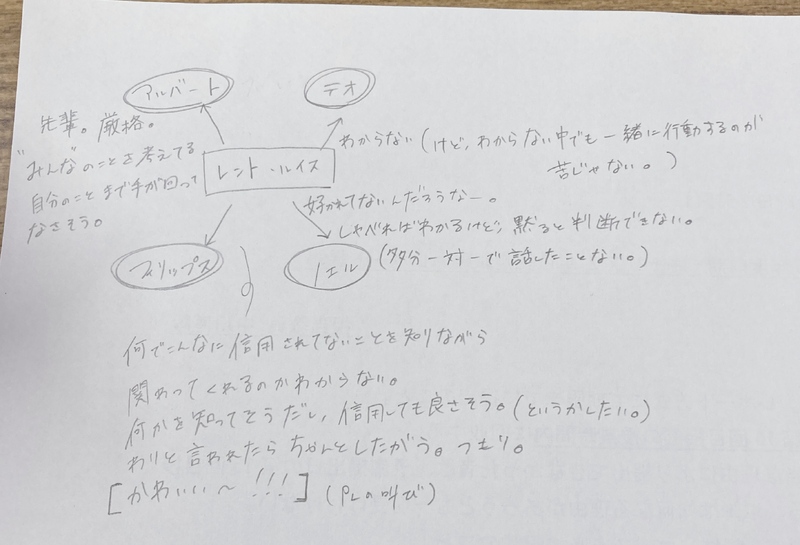 アルバート
テオ
先輩。厳格。
"みんな"のことを考えてる
自分のことまで手が回って
なさそう。
レント・ルイス
わからない(けど、わからない中でも一緒に行動するのが
苦じゃない。)
好かれてないんだろうなー。
しゃべればわかるけど、黙ると判断できない。
フィリップス
ノエル
(多分一対一で話したことない。)
何でこんなに信用されてないことを知りながら
関わってくれるのかわからない。
何かを知ってそうだし、信用しても良さそう。(というかしたい。)
わりと言われたらちゃんとしたがう。つもり。
[かわいい~!!!](PLの叫び)